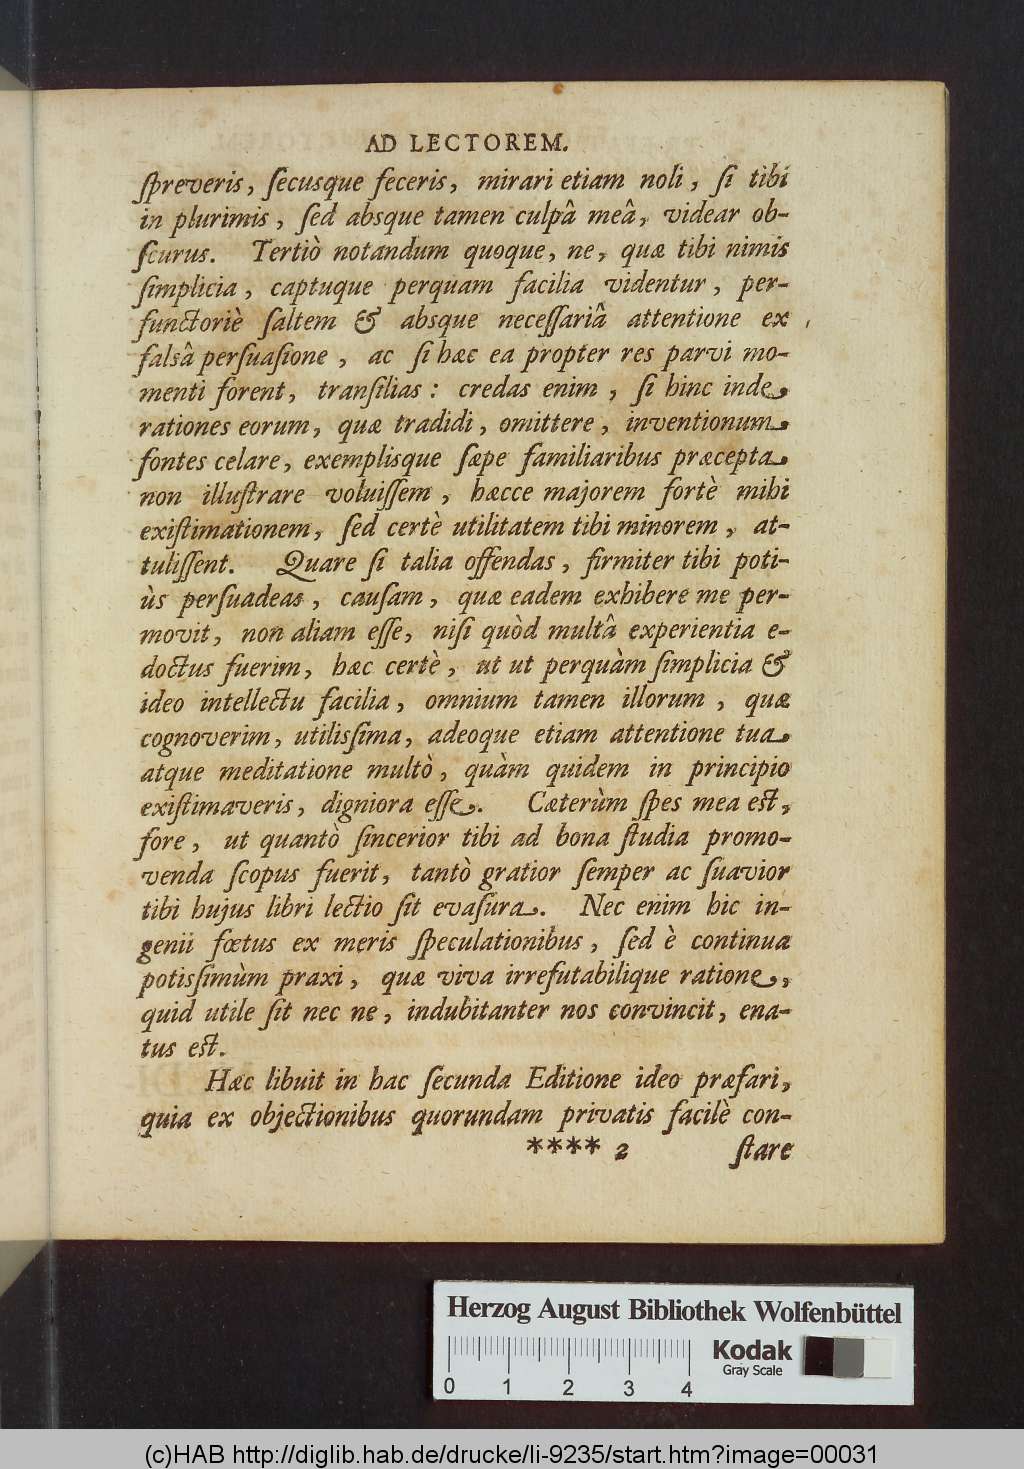 AD LECTOREM.
ſpreveris, ſecusque feceris, mirari etiam noli, ſi tibi
in plurimis, ſed absque tamen culpâ meâ, videar ob-
ſcurus. Tertiò notandum quoque, ne, quæ tibi nimis
ſimplicia, captuque perquam facilia videntur, per-
functoriè ſaltem & absque neceſſariâ attentione ex
falsâ perſuaſione, ac ſi hæc ea propter res parvi mo-
menti forent, tranſilias: credas enim, ſi hinc inde
rationes eorum, quæ tradidi, omittere, inventionum
fontes celare, exemplisque ſæpe familiaribus præcepta
non illuſtrare voluiſſem, hæcce majorem fortè mihi
exiſtimationem, ſed certè utilitatem tibi minorem, at-
tuliſſent. Quare ſi talia offendas, firmiter tibi poti-
ùs perſuadeas, cauſam, quæ eadem exhibere me per-
movit, non aliam eſſe, niſi quòd multâ experientia e-
doctus fuerim, hæc certè, ut ut perquàm ſimplicia &
ideo intellectu facilia, omnium tamen illorum, quæ
cognoverim, utilisſima, adeoque etiam attentione tua
atque meditatione multò, quàm quidem in principio
exiſtimaveris, digniora eſſe. Cæterùm ſpes mea eſt,
fore, ut quantò ſincerior tibi ad bona ſtudia promo-
venda ſcopus fuerit, tantò gratior ſemper ac ſuavior
tibi hujus libri lectio ſit evaſura. Nec enim hic in-
genii fœtus ex meris ſpeculationibus, ſed è continua
potisſimùm praxi, quæ viva irrefutabilique ratione,
quid utile ſit nec ne, indubitanter nos convincit, ena-
tus eſt.
Hæc libuit in hac ſecunda Editione ideo præfari,
quia ex objectionibus quorundam privatis facilè con-
**** 2 ſtare
Herzog August Bibliothek Wolfenbüttel
Kodak
Gray Scale
0 1 2 3 4
(c)HAB http://diglib.hab.de/drucke/li-9235/start.htm?image=00031